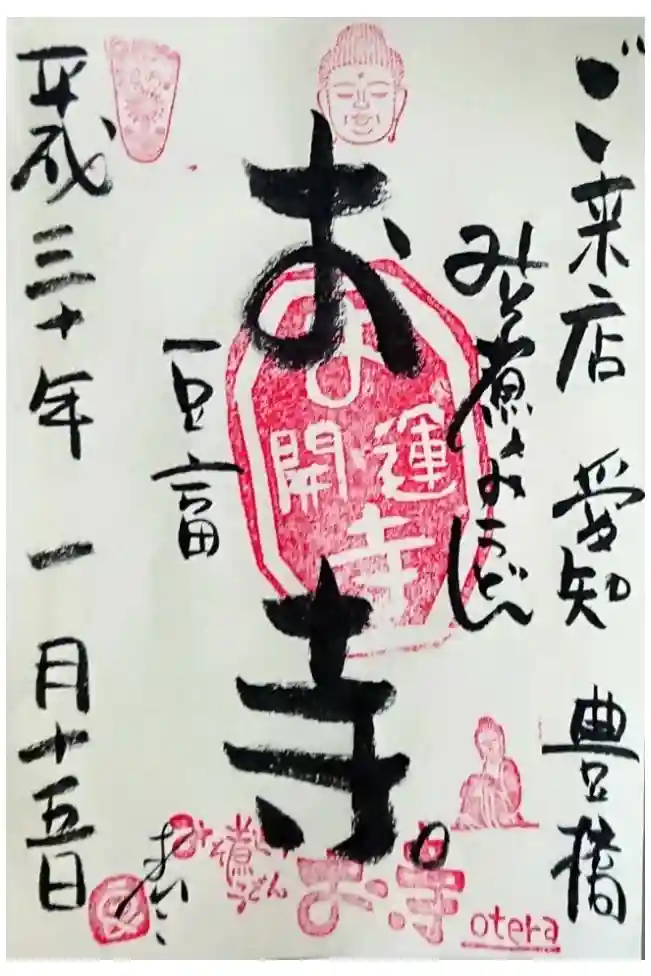 ご来店 愛知 豊橋
みそ煮込うどん
お寺。
開運
お寺
豆富
平成三十年 一月十五日
みそ煮込
うどん
お寺
otera